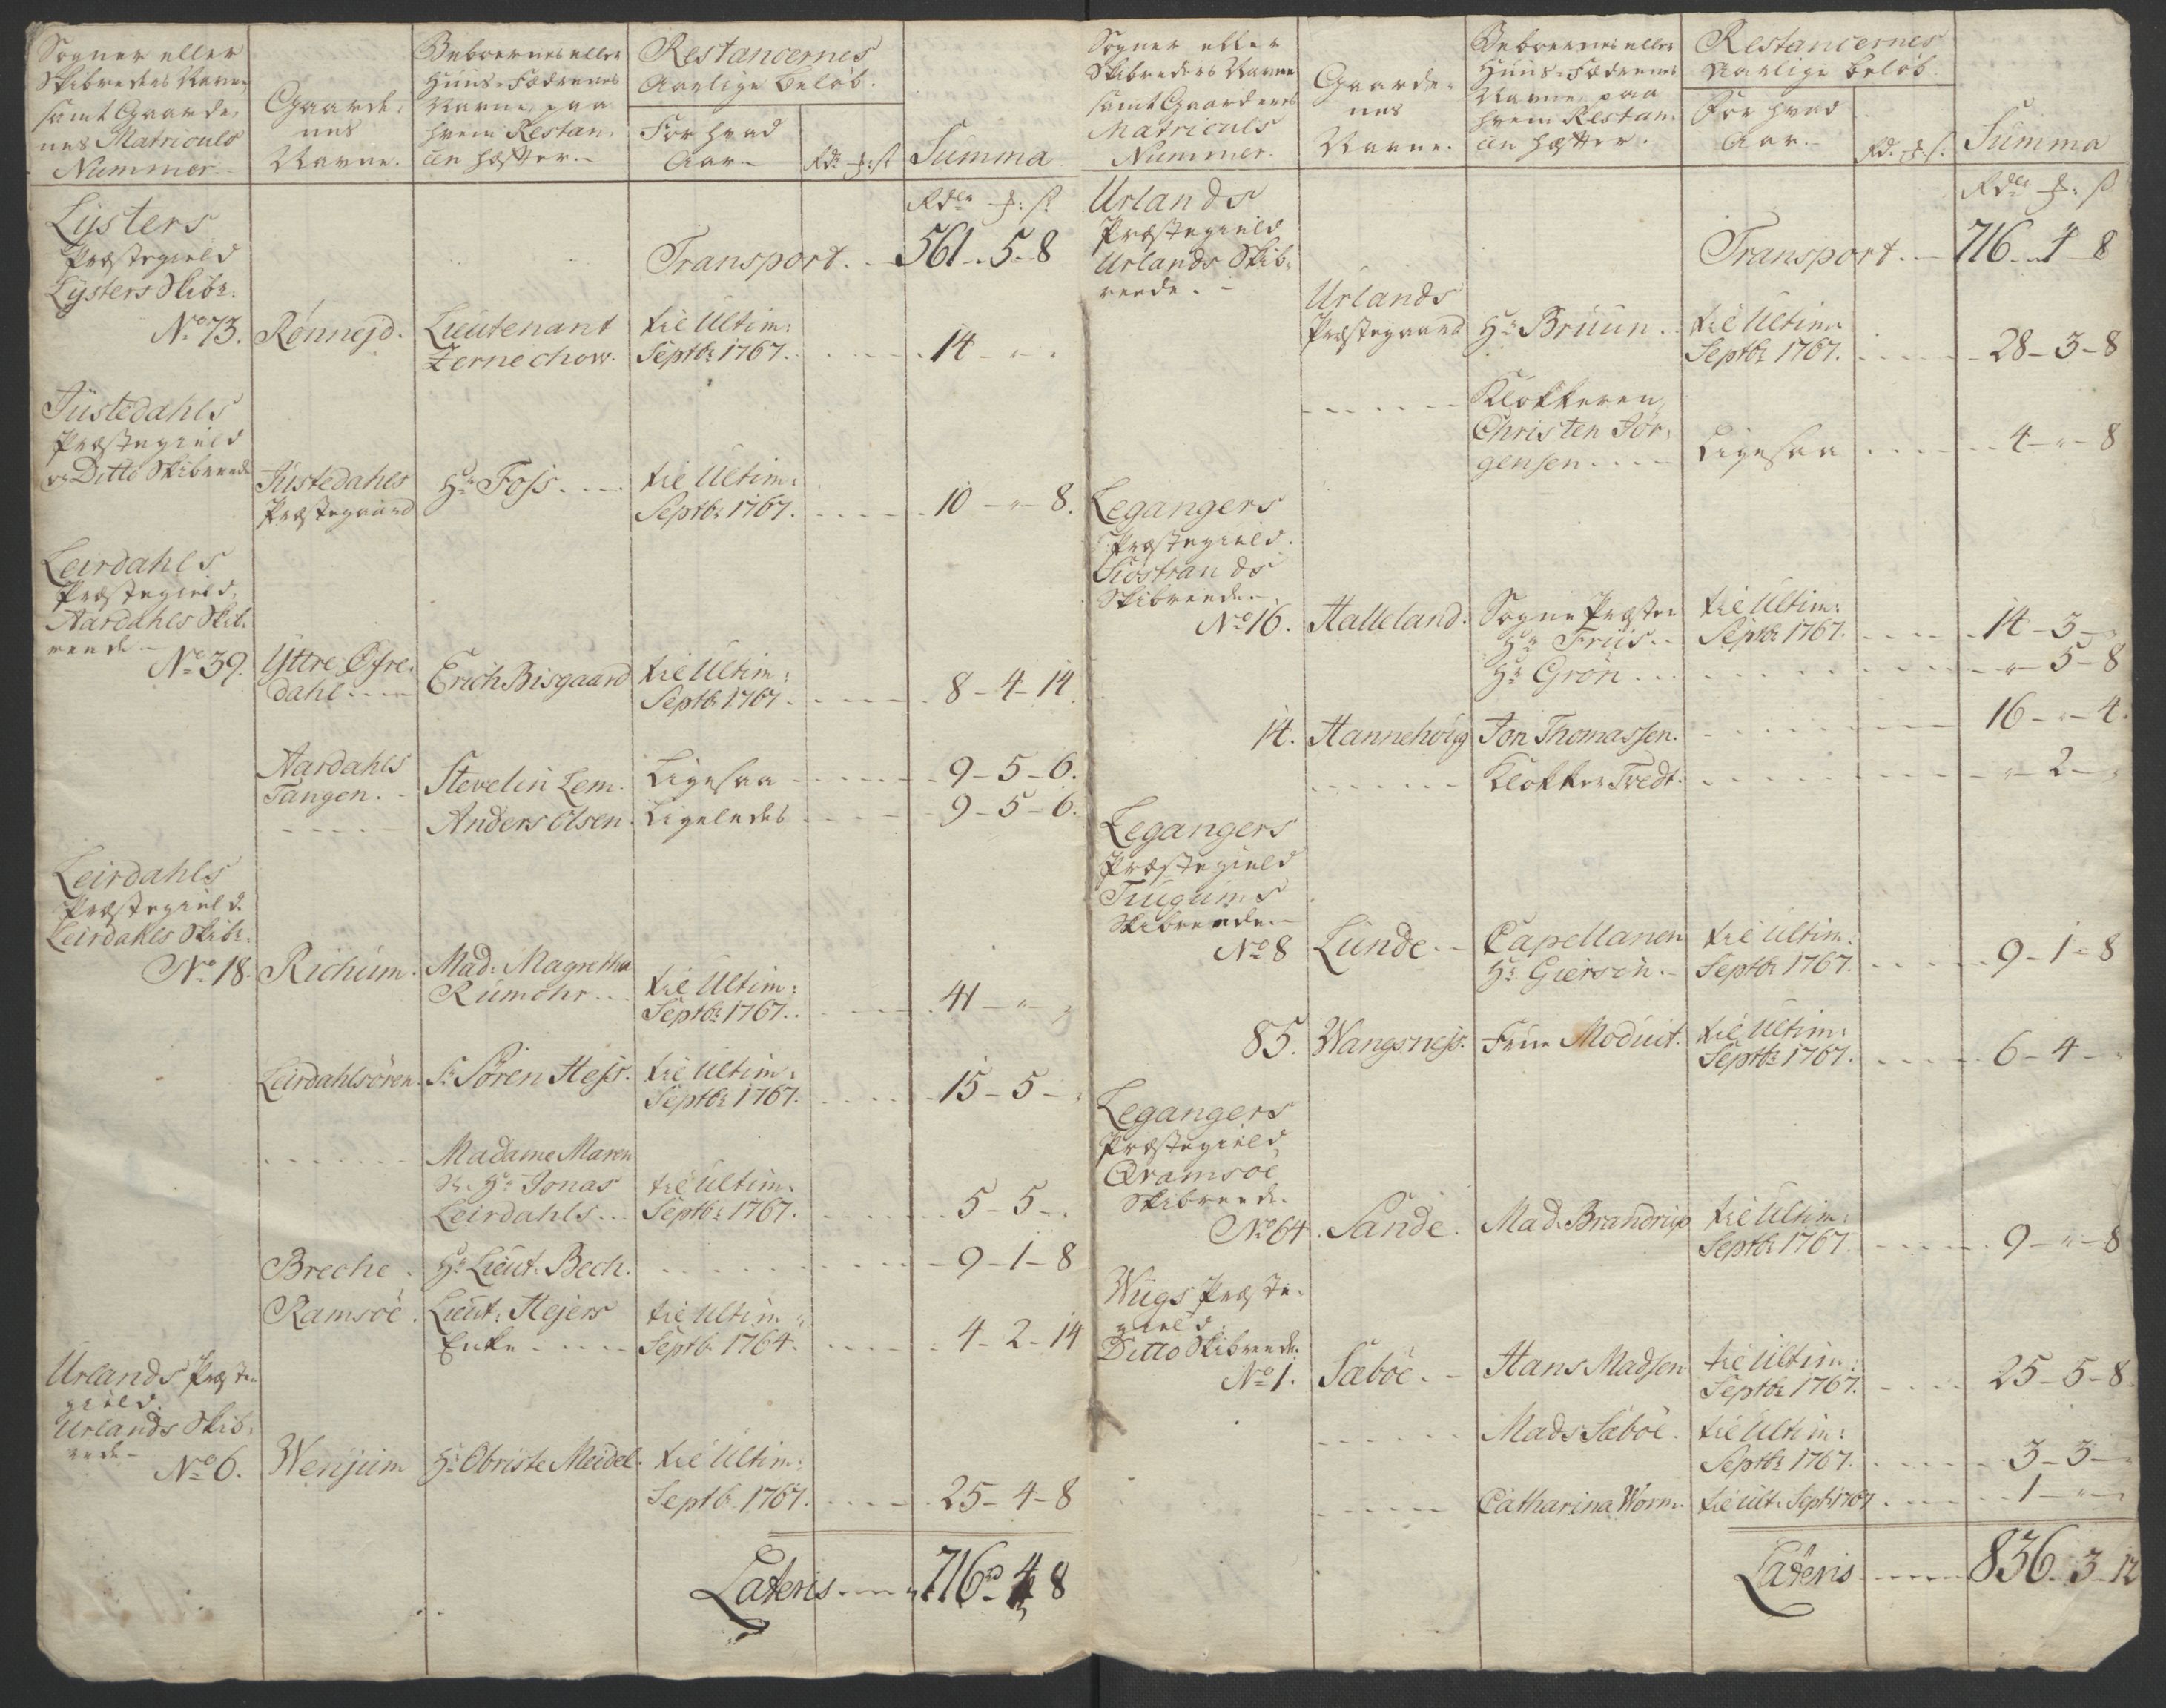 Sogner eller
Skibreders Navne
samt Gaarde,,
nes Matriculs
Nummer.
Gaarde,,
nes
Navne.
Beboernes eller
Huus-Fædrenes
Navne, paa
hvem Restan,,
cen hæfter.
Restancernes
Aarlige Beløb.
For hvad
Aar.
Rd. ort: ß
Summa
Rdlr ort: ß
Lysters
Præstegield
Lysters Skibr:
Transport. - 561 - 5 - 8
No 73. Rønnejd. Lieutenant til Ultim:
Zernechow. Septbr 1767. 14 - " -
Justedahls
Præstegield
og Ditto Skibreede
Justedahls Hr Foss. til Ultim:
Præstegaard Septbr 1767. 10 - " - 8.
Leirdahls
Præstegield,
Aardahls Skib,,
reede.
No 39. Yttre Ofre,, Erich Bisgaard til Ultim:
dahl Septbr 1767. 8 - 4 - 14.
Aardahls
Tangen. Stevelin Lem. Ligesaa 9 - 5 - 6.
Anders Olsen. Ligeledes 9 - 5 - 6.
Leirdahls
Præstegield.
Leirdahls Skibr.
No 18. Richum. Mad. Magretha
Rumohr. til Ultim:
Septbr 1767. 41 - " -
Leirdahlsøren. Sr Søren Hess. til Ultim:
Septbr 1767. 15 - 5 -
Madame Maren
Hr Jonas til Ultim:
Leirdahls. Septbr 1767. 5 - 5 -
Breche. Hr Lieut. Bech. 9 - 1 - 8
Ramsøe. Lieut. Hejers til Ultim:
Enke Septb. 1764. 4 - 2 - 14
Urlands Præste
gield.
Urlands Skib,,
rede
No 6. Wenjum Hr Obriste Meidel. til Ultim:
Septb. 1767. 25 - 4 - 8
Lateris 716 - 4 8
Sogner eller
Skibreders Navne
samt Gaardenes
Matriculs
Nummer.
Gaarde,,
nes
Navne.
Beboernes eller
Huus-Fædrenes
Navne, paa
hvem Restan,,
cen hæfter.
Restancernes
Aarlige Beløb.
For hvad
Aar.
Rd. ort: ß.
Summa
Rdlr ort: ß.
Urlands
Præstegield
Urlands Skib,,
reede.
Transport. - 716 - 4 - 8
Urlands
Præstegaard Hr Bruun. til Ultim:
Septbr 1767. 28 - 3 - 8
Klokkeren,
Christen Jør,,
gensen. Ligesaa 4 - " - 8
Legangers
Præstegield.
Siøstrands
Skibreede.
No 16. Halleland. Sogne Præsten til Ultim:
Hr Friis. Septbr 1767. 14 - 3 -
Hr Grøn " - 5 - 8
14. Hannehoug Jon Thomassen. 16 - " - 4.
Klokker Tvedt. " - 2 -
Legangers
Præstegield
Tiugums
Skibreede.
No 8 Lunde. Capellanen til Ultim:
Hr Giersin. Septbr 1767. 9 - 1 - 8
85. Wangsness. Frue Moduit. til Ultim:
Septbr 1767. 6 - 4 -
Legangers
Præstegield,
Qvamsøe
Skibreede.
No 64. Sande. Mad. Brandrup til Ultim:
Septbr 1767. 9 - " - 8
Wugs Præste,,
gield.
Ditto Skibreede.
No 1. Sæbøe. Hans Madsen til Ultim:
Septbr 1767. 25 - 5 - 8
Mads Sæbøe. til Ultim:
Septbr 1767. 3 - 3 -
Catharina Worm. til Ult. Sept. 1767. 1 - " -
Lateris 836 - 3 - 12